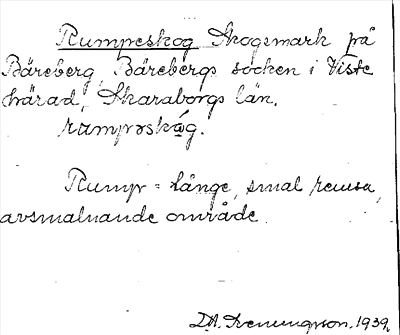 Rumpeskog Skogsmark på
Bäreberg, Bärebergs socken i Viste
härad, Skaraborgs län.
rumpəskóg.
Rump = långe, smal remsa,
avsmalnande område.
1939.